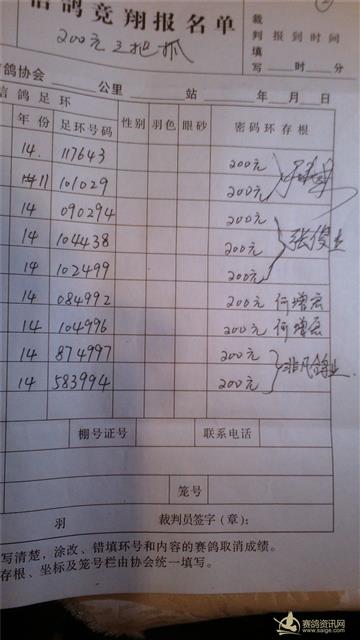 信鸽竞翔报名单
裁判填写
报到时间
时 分
200元三把抓
信鸽协会 公里 站 年 月 日
信鸽足环
年份 足环号码 性别 羽色 眼砂 密码环存根
14. 117643 200元
11 101029 200元
14 090294 200元
14 104438 200元 张俊
14 102499 200元
14 084992 200元 何增宏
14 104996 200元 何增宏
14 874997 200元 非凡鸽业
14 583994 200元
棚号证号 联系电话
笼号
羽 裁判员签字（章）：
写清楚，涂改、错填环号和内容的赛鸽取消成绩。
存根、坐标及笼号栏由协会统一填写。
赛鸽资讯网
www.saige.com